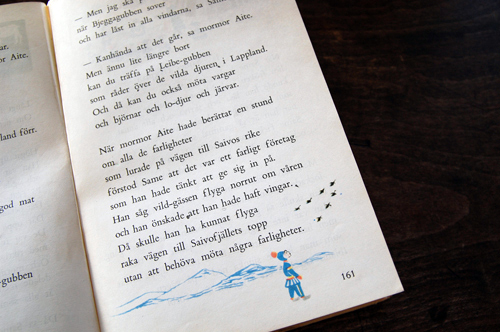 åt.
mor Aite.
land förr.
god mat
-gubben
— Men jag ska
när Bjeggagubben sover
och har läst in alla vindarna, sa
— Kanhända att det går, sa mormor Aite.
Men ännu lite längre bort
kan du träffa på Leibe-gubben
som råder över de vilda djuren i Lappland.
Och då kan du också möta vargar
och björnar och lo-djur och järvar.
När mormor Aite hade berättat en stund
om alla de farligheter
som lurade på vägen till Saivos rike
förstod Same att det var ett farligt företag
som han hade tänkt att ge sig in på.
Han såg vild-gässen flyga norrut om våren
och han önskade att han hade haft vingar.
Då skulle han ha kunnat flyga
raka vägen till Saivofjällets topp
utan att behöva möta några farligheter.
161